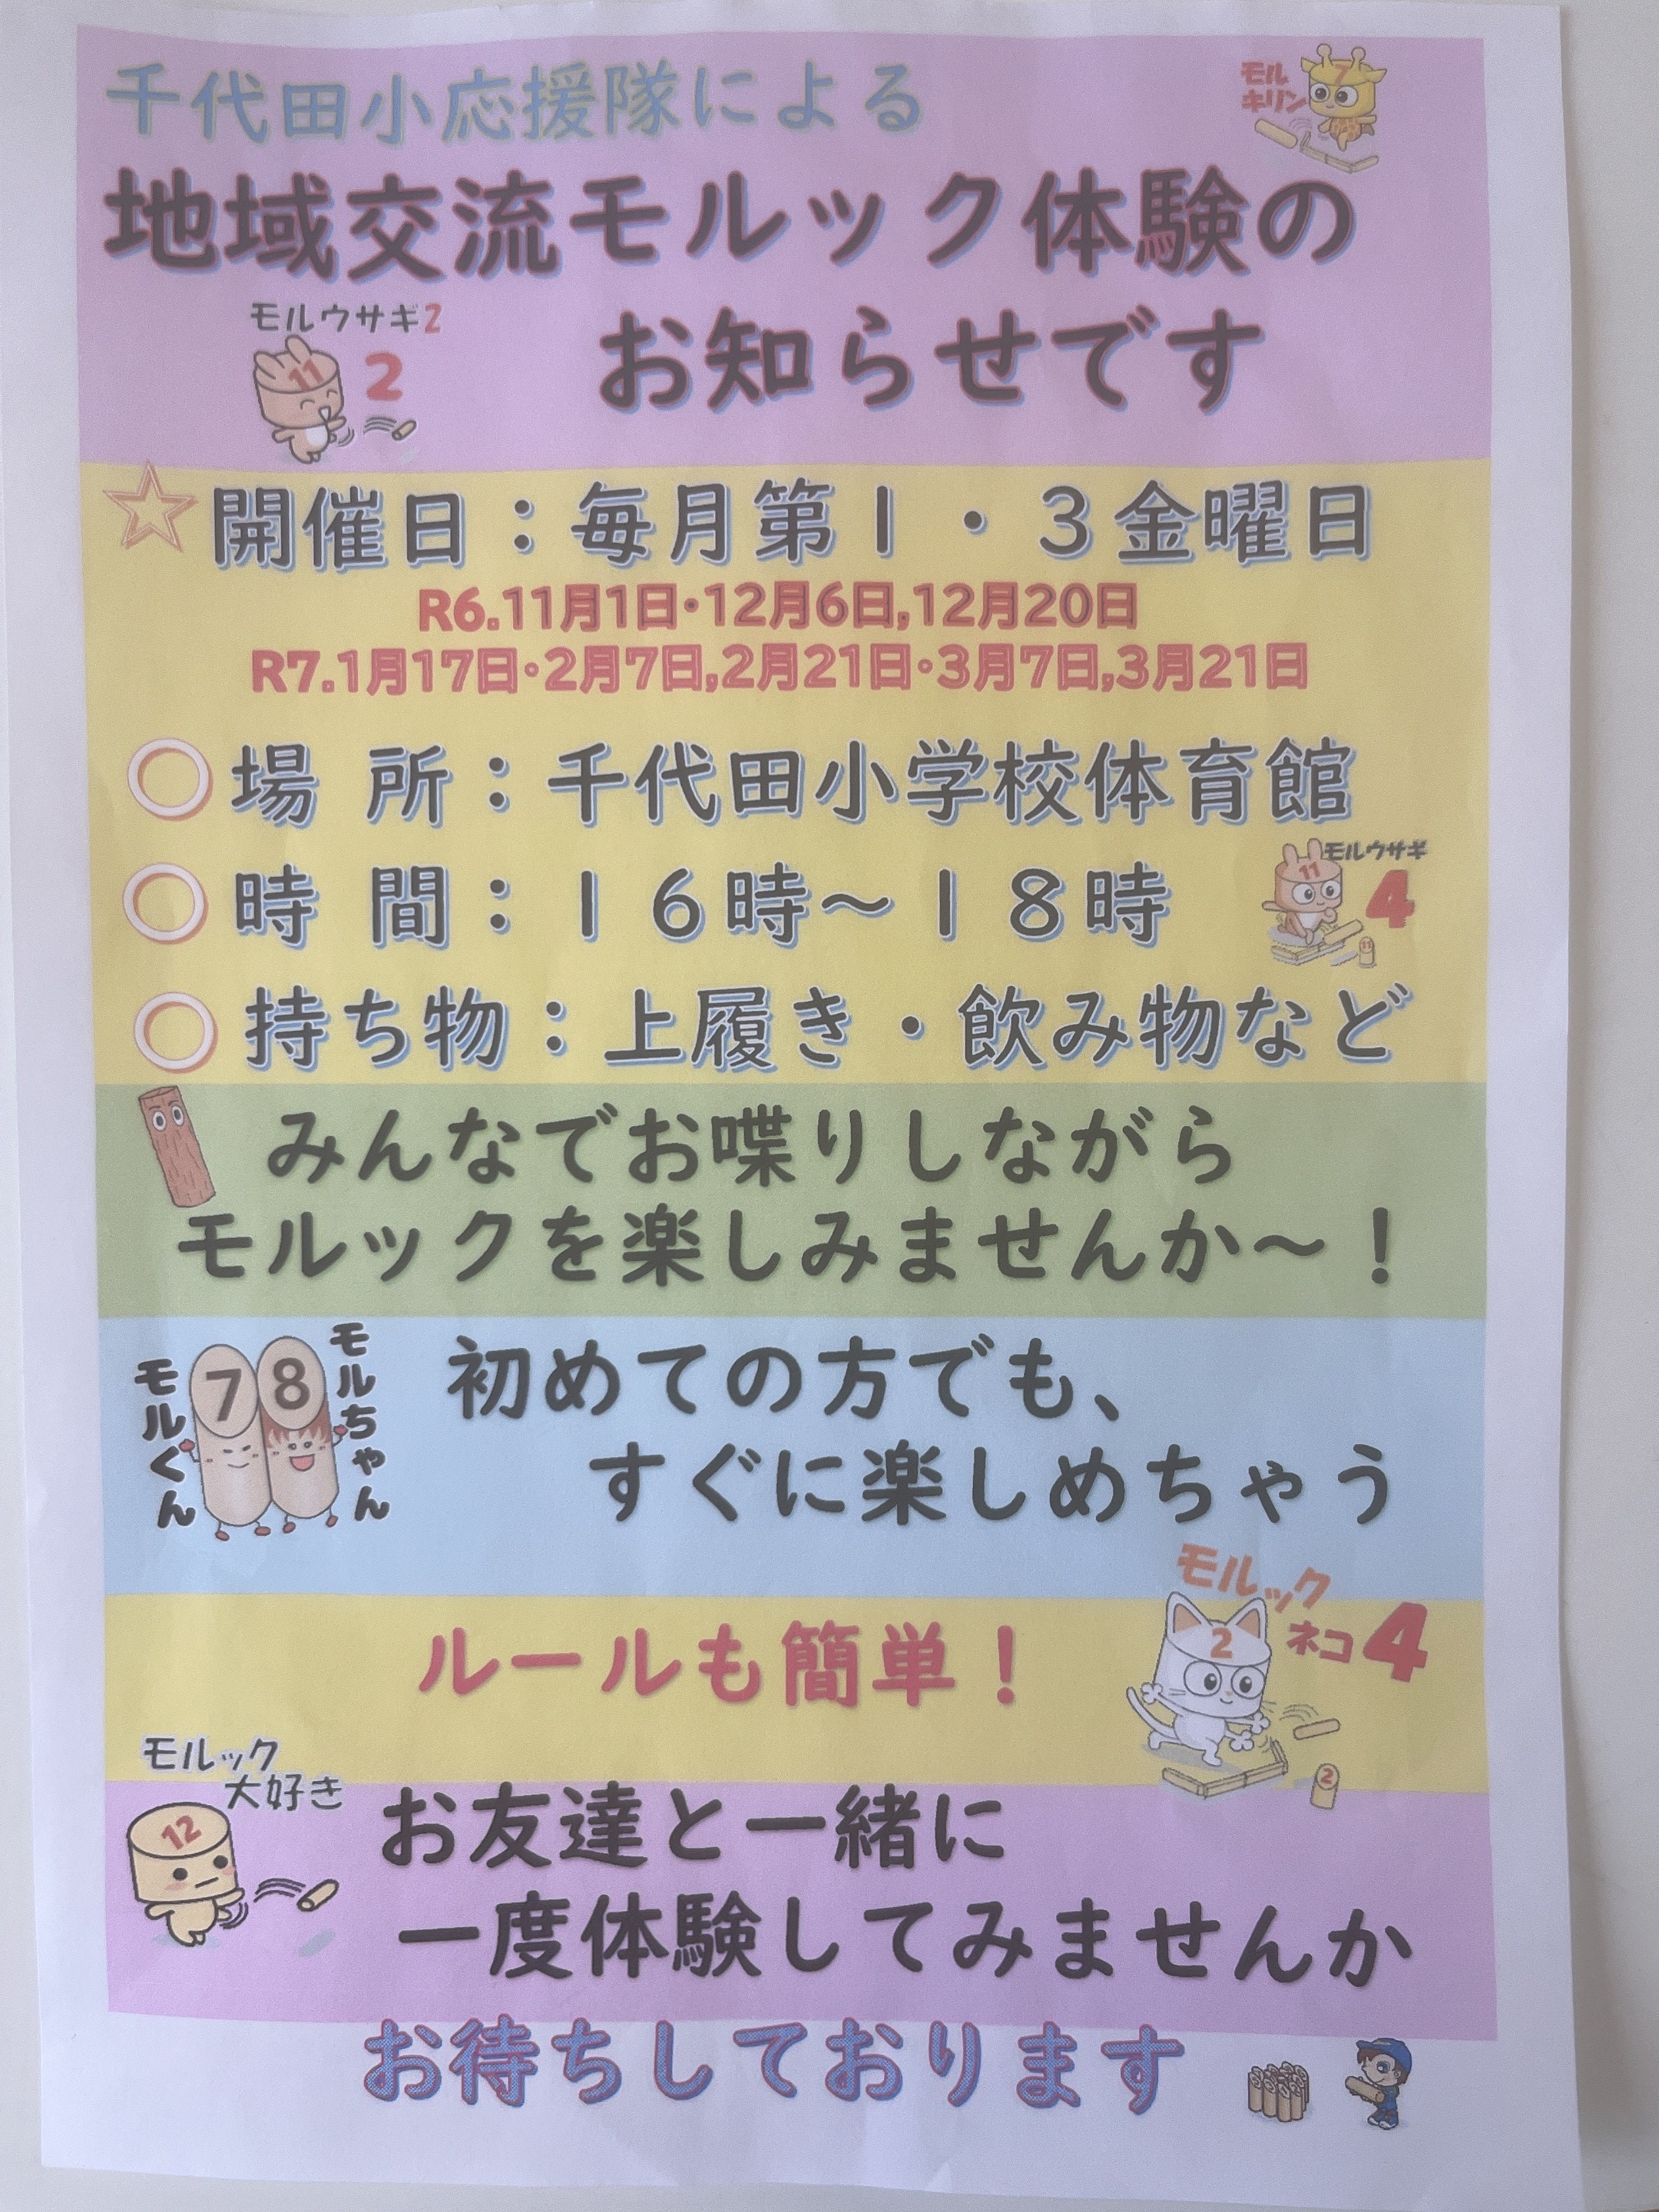 千代田小応援隊による
モル
キリン
7
地域交流モルック体験の
お知らせです
モルウサギ2
11
2
☆開催日：毎月第１・３金曜日
R6.11月1日・12月6日,12月20日
R7.1月17日・2月7日,2月21日・3月7日,3月21日
○場 所：千代田小学校体育館
○時 間：１６時～１８時
モルウサギ
11
4
11
○持ち物：上履き・飲み物など
みんなでお喋りしながら
モルックを楽しみませんか～！
モルくん
7
8
モルちゃん
初めての方でも、
すぐに楽しめちゃう
モルック
ネコ4
2
2
ルールも簡単！
モルック
大好き
12
お友達と一緒に
一度体験してみませんか
お待ちしております